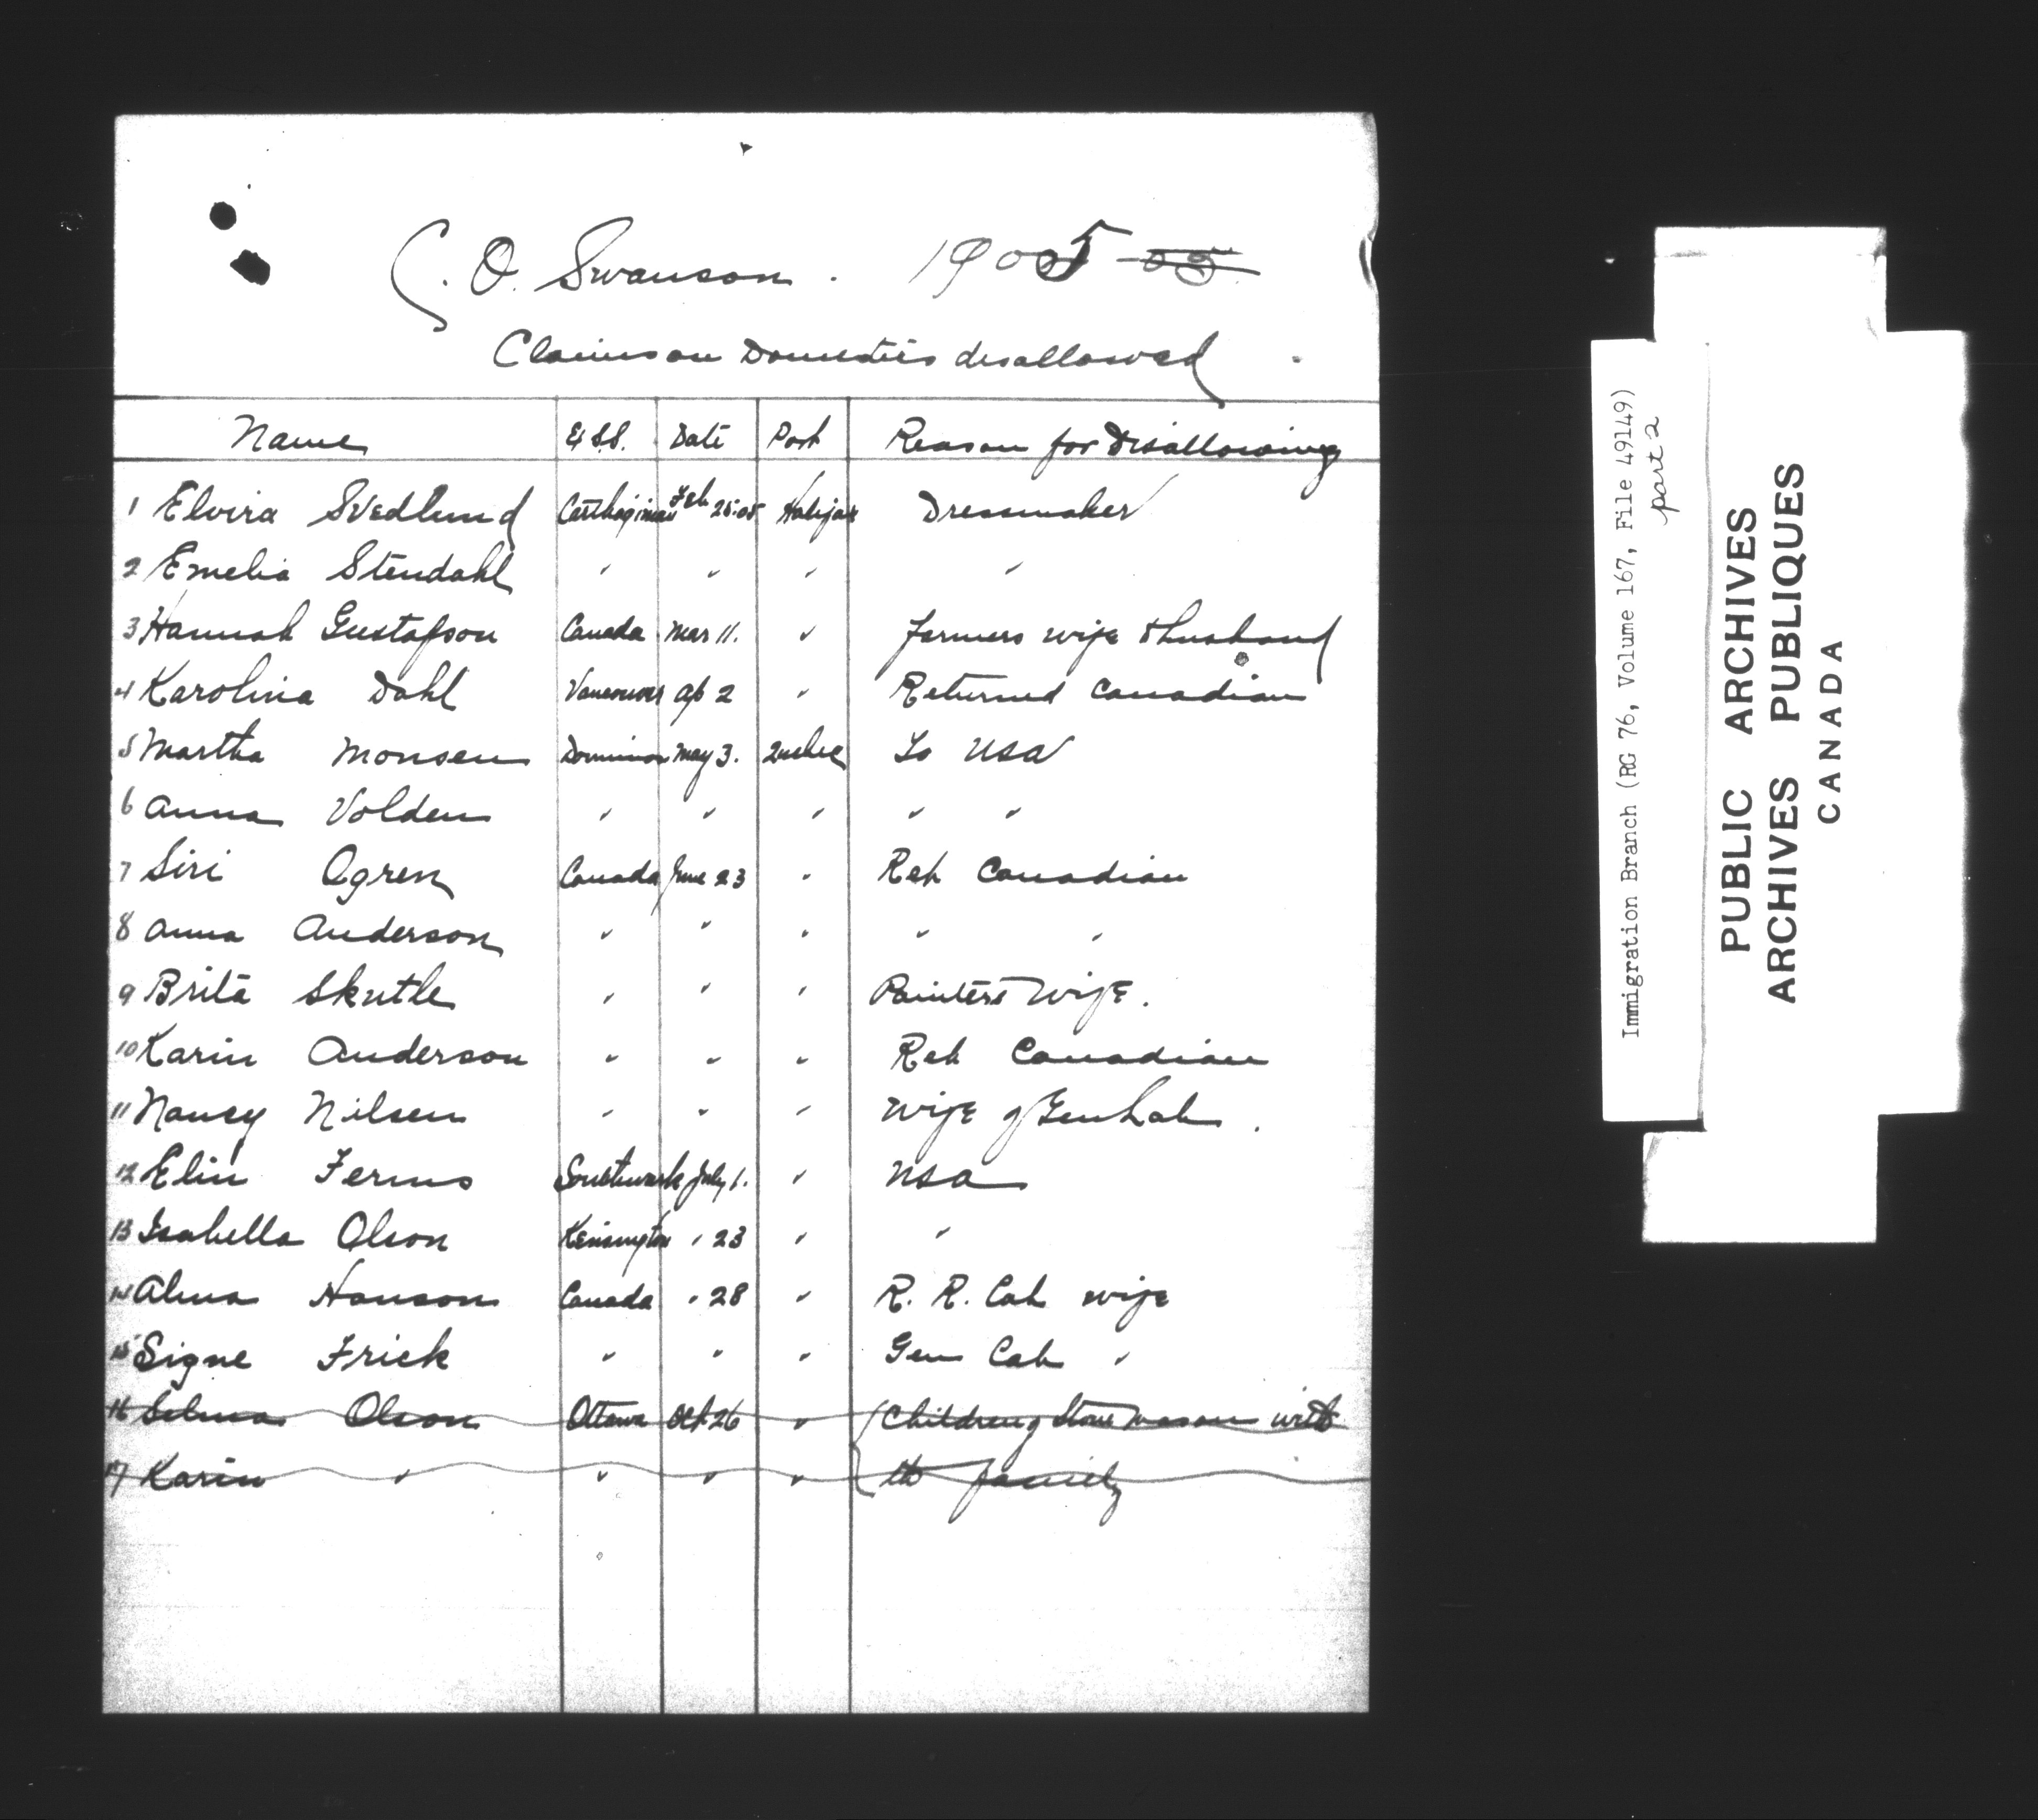 C. O. Swanson. 1905
Claims on Domestics disallowed.
Name Ex S.S. Date Port Reason for Disallowing
1 Elvira Svedlund Carthaginian Feb 25.05 Halifax Dressmaker
2 Emelia Stendahl " " " "
3 Hannah Gustafson Canada Mar 11. " farmers wife & husband
4 Karolina Dahl Vancouver Ap 2 " Returned Canadian
5 Martha Monsen Dominion May 3. Quebec To USA
6 Anna Volden " " " " "
7 Siri Ogren Canada June 23 " Ret Canadian
8 Anna Anderson " " " " "
9 Brita Skutle " " " Painters Wife.
10 Karin Anderson " " " Ret Canadian
11 Nancy Nilsen " " " Wife of Gen Lab.
12 Elin Ferms Southwark July 1. " USA
13 Isabella Olson Kensington " 23 " "
14 Alma Hanson Canada " 28 " R. R. Lab wife
15 Signe Frick " " " Gen Lab "
16 Selma Olson Ottawa Oct 26 " (Children of Stone mason with
17 Karin " " " " family
Immigration Branch (RG 76, Volume 167, File 49149)
part 2
PUBLIC ARCHIVES
ARCHIVES PUBLIQUES
CANADA